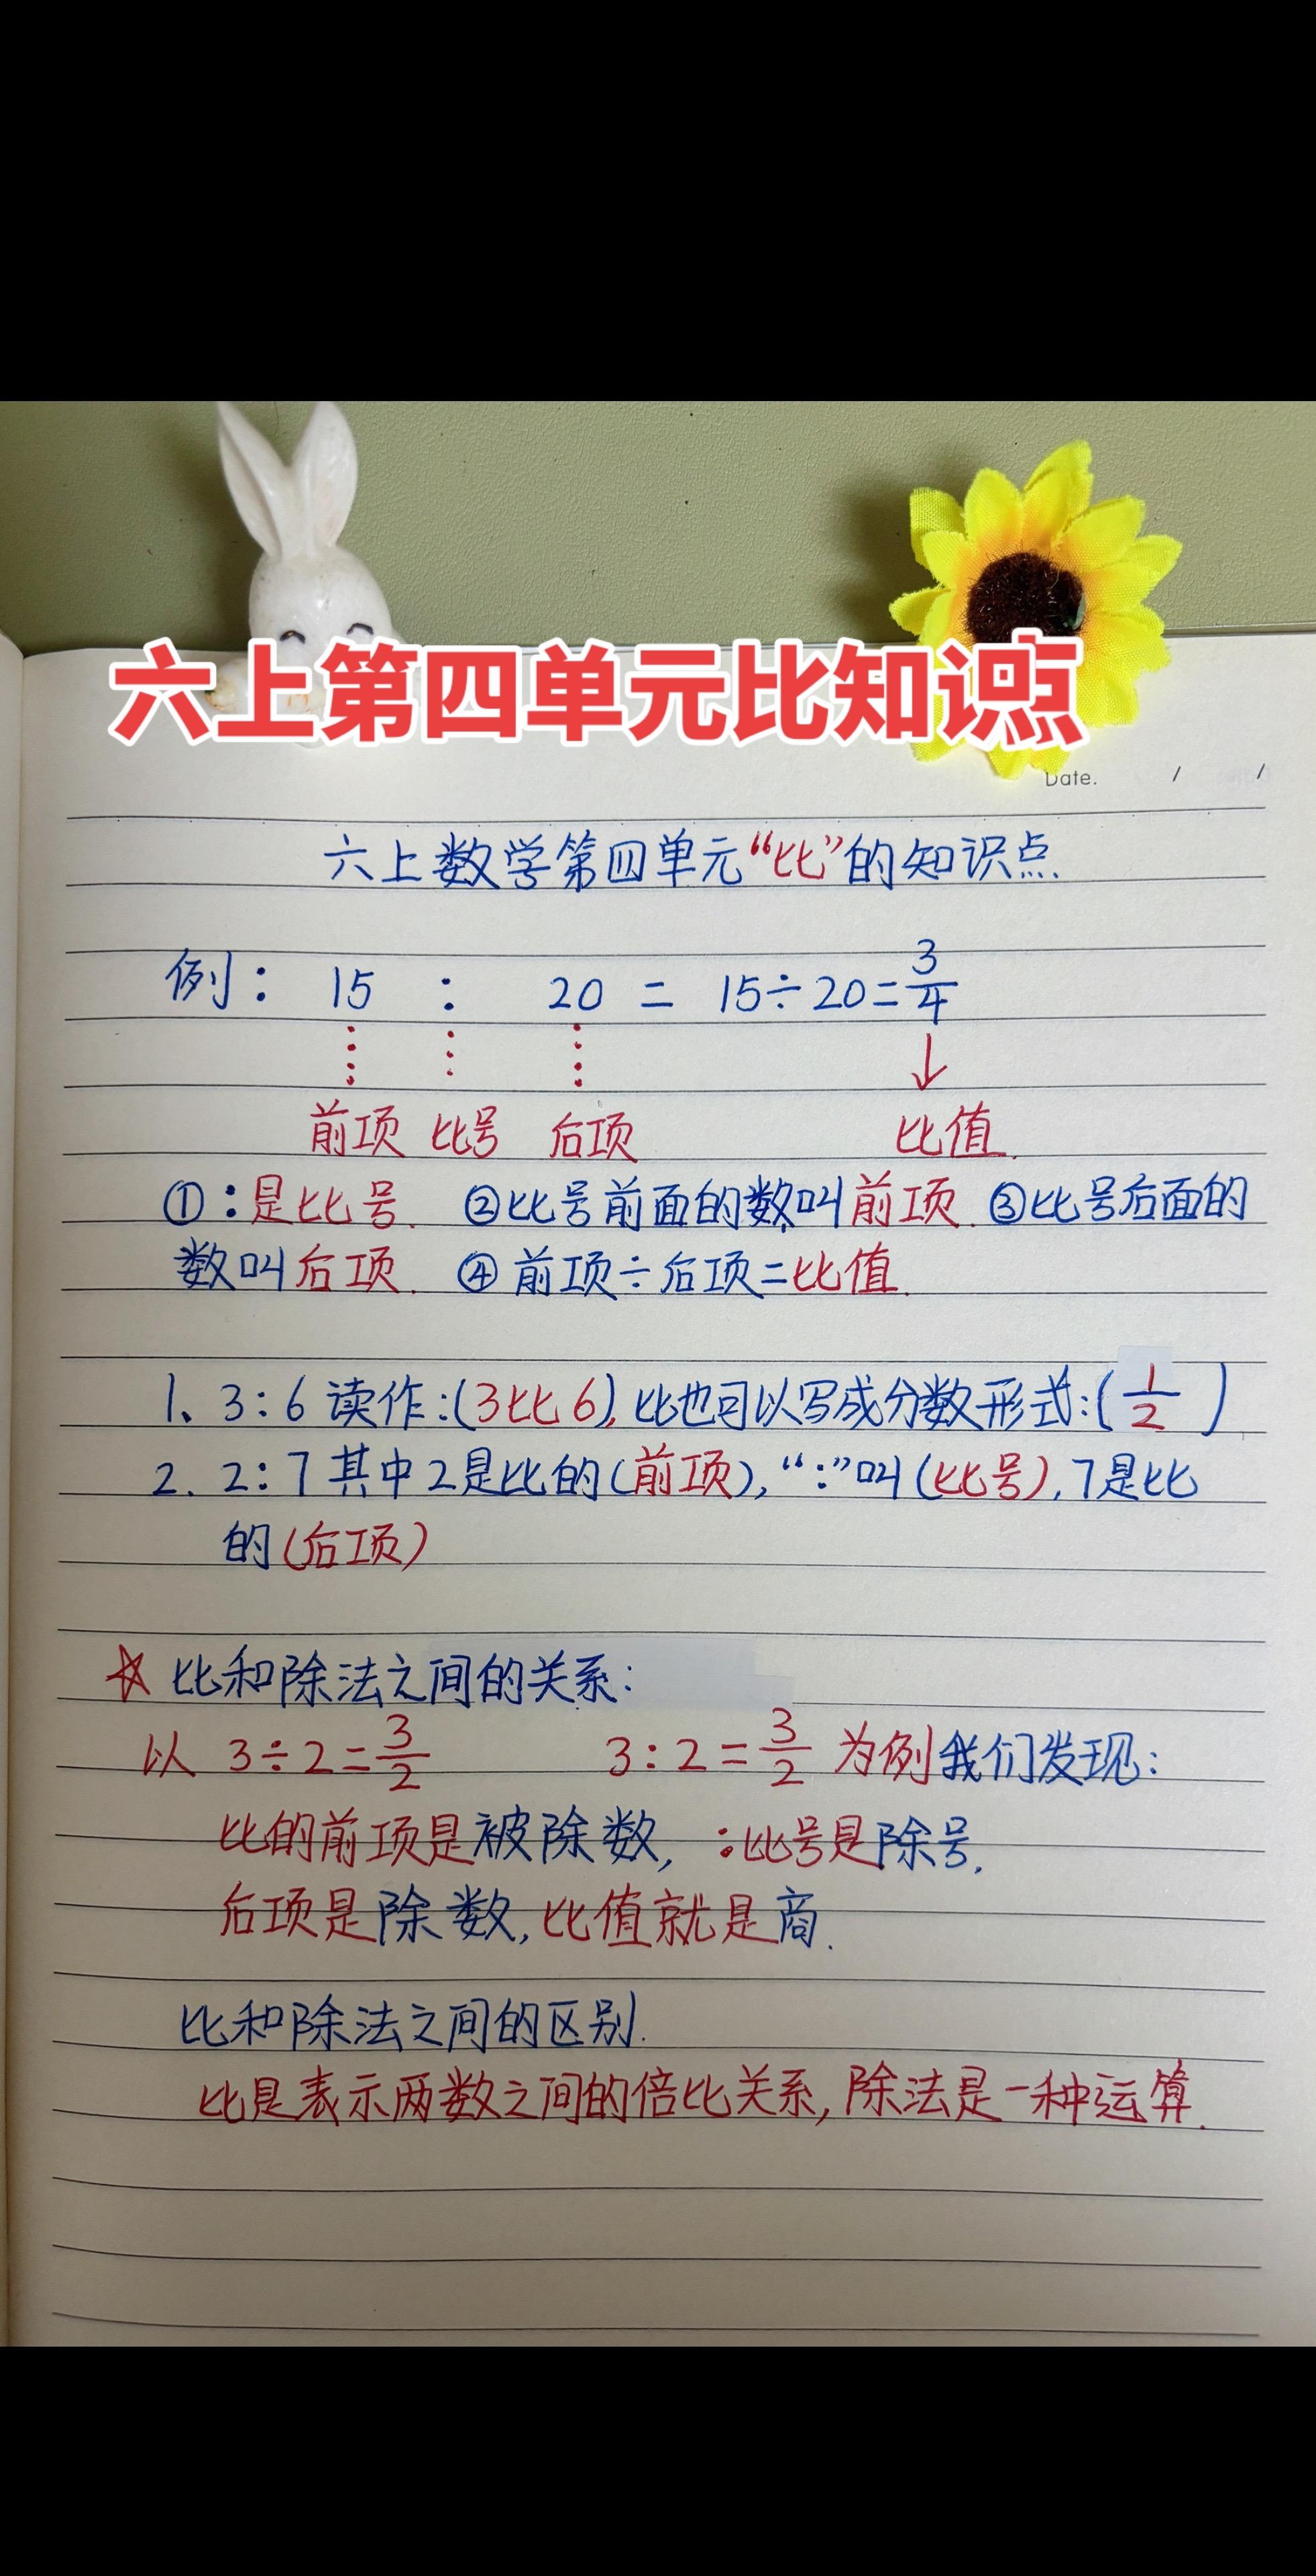 六上第四单元比知识点
Date. / /
六上数学第四单元“比”的知识点.
例: 15 : 20 = 15÷20=3/4
前项 比号 后项 比值.
①:是比号. ②比号前面的数叫前项. ③比号后面的
数叫后项. ④前项÷后项=比值.
1、3:6读作:(3比6), 比也可以写成分数形式:(1/2)
2. 2:7其中2是比的(前项), “:”叫(比号), 7是比
的(后项)
☆比和除法之间的关系:
以 3÷2=3/2 3:2=3/2 为例我们发现:
比的前项是被除数, :比号是除号.
后项是除数, 比值就是商.
比和除法之间的区别.
比是表示两数之间的倍比关系, 除法是一种运算.